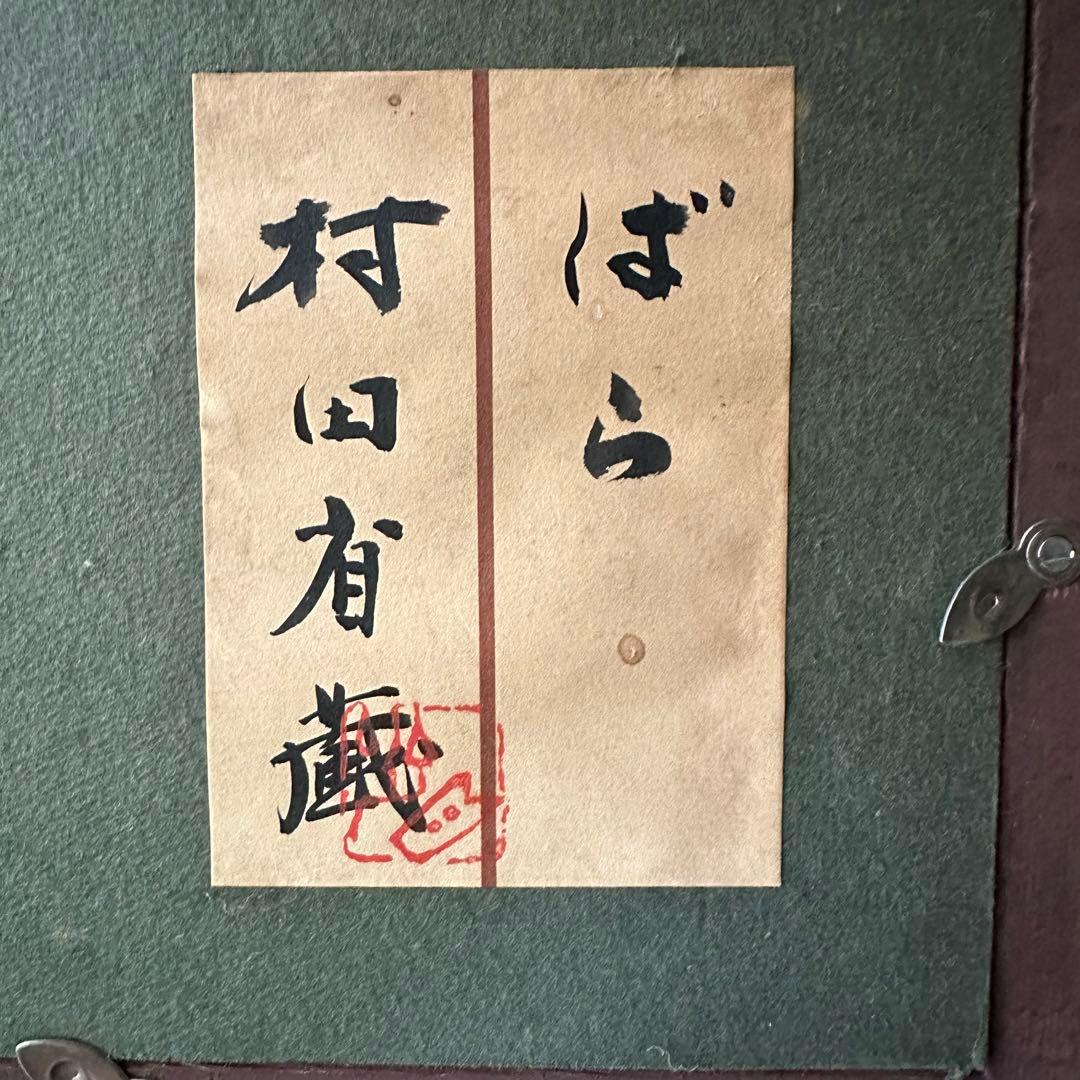 ばら
村田省蔵